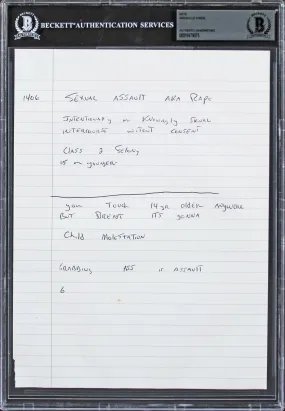 BECKETT AUTHENTICATION SERVICES
BECKETT
BECKETT
1406 SEXUAL ASSAULT AKA RAPE
INTENTIONALLY OR KNOWINGLY SEXUAL
INTERCOURSE WITOUT CONSENT
CLASS 2 FELONY
15 OR YOUNGER
you TOUCH 14 yr OLDER ANYWHERE
BUT BREAST ITS GONNA
Child MOLESTATION
GRABBING ASS IS ASSAULT
6